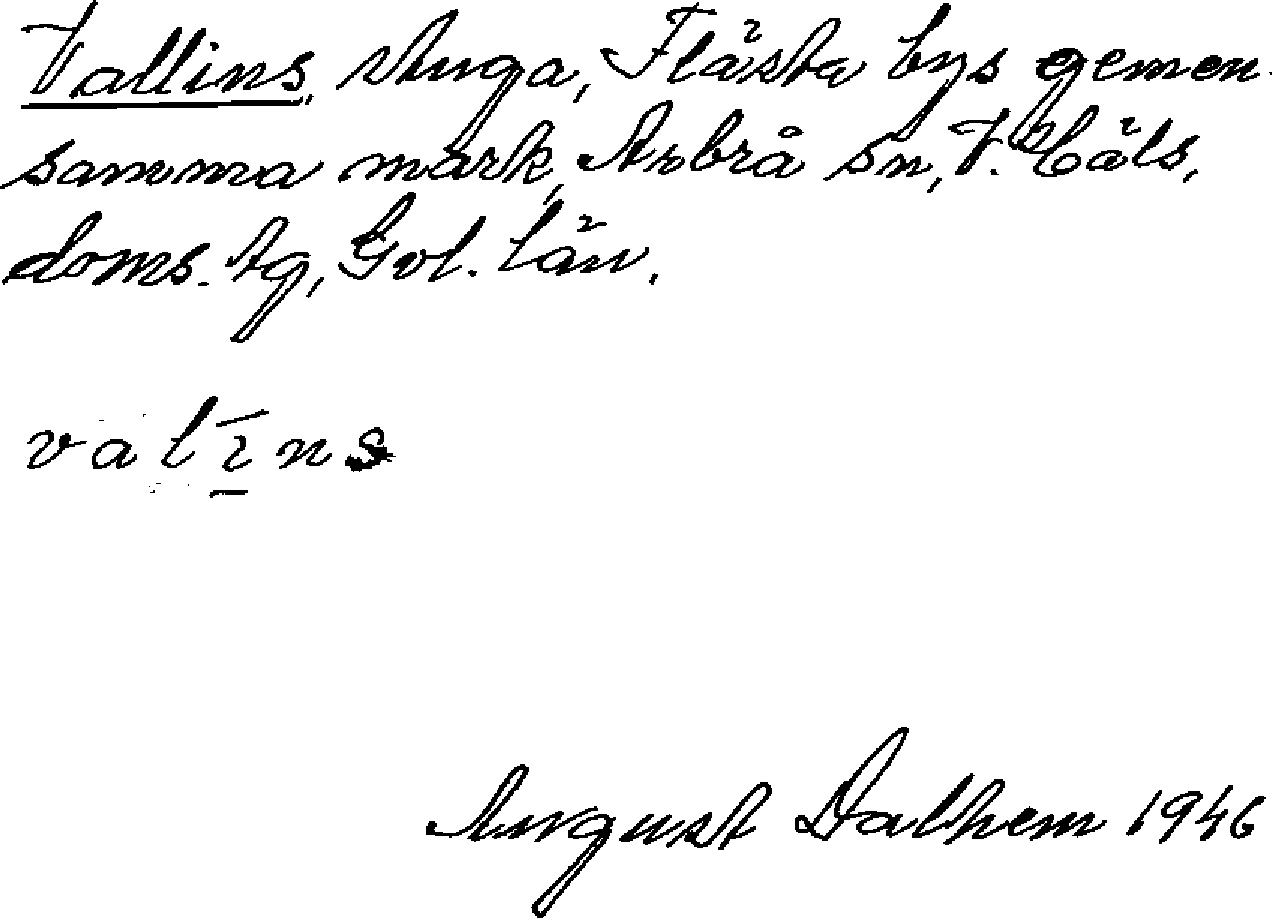 Vallins stuga, Flästa bys gemen-
samma mark, Arbrå sn, V. Häls,
doms. tg, Gvl. län.
v a l ī n s
August Dalhem 1946